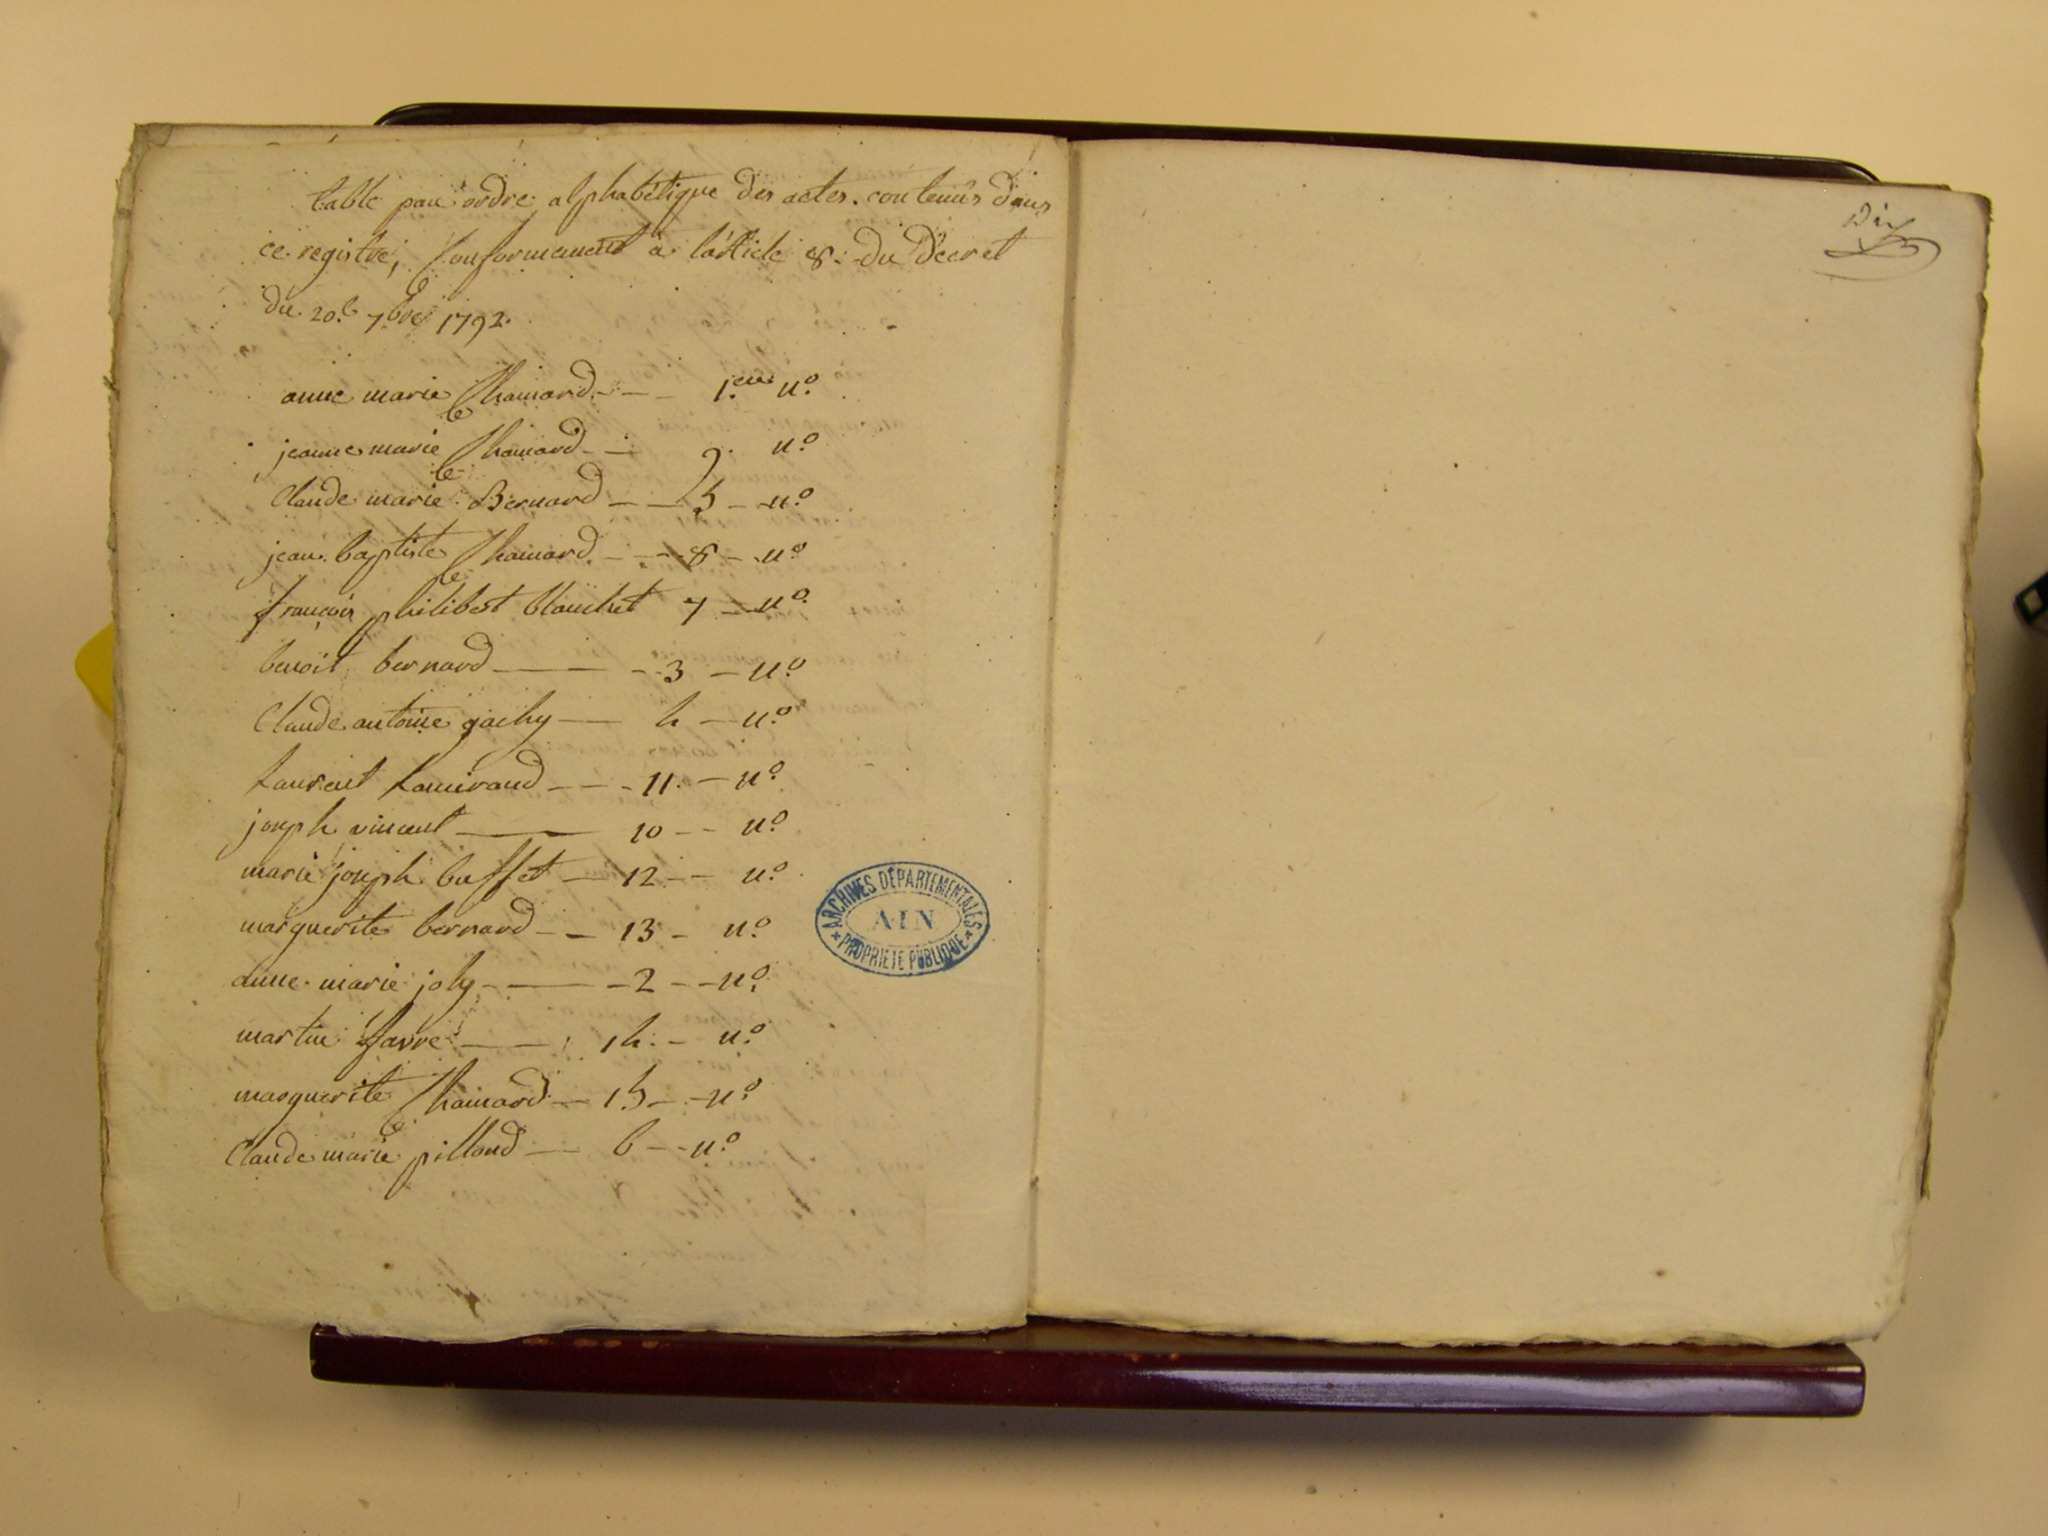 table par ordre alphabétique des actes contenus dans
ce registre, Conformement à l'article 8. du Décret
du 20.e 7.bre 1792.
anne marie Chanard 1.er n.o
jeanne marie Chanard 9. n.o
Claude marie Bernard 5 n.o
jean baptiste Chanard 8 n.o
françois philibert blanchet 7 n.o
benoit bernard 3 n.o
Claude antoine gachy 4 n.o
Laurent 11 n.o
joseph vincent 10 n.o
marie joseph buffet 12 n.o
marguerite bernard 13 n.o
anne marie joly 2 n.o
martin favre 14 n.o
marguerite Chanard 15 n.o
Claude marie pilloud 6 n.o
ARCHIVES DÉPARTEMENTALES
AIN
PROPRIÉTÉ PUBLIQUE
Dix